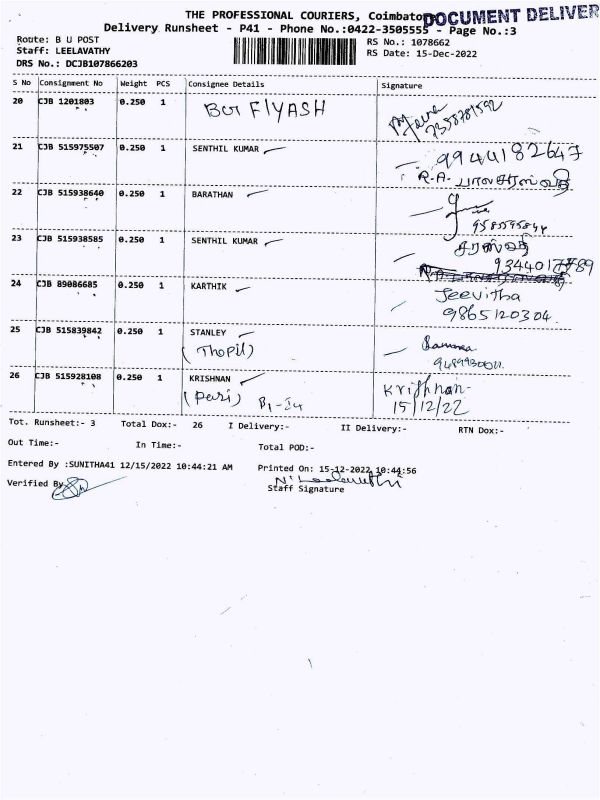 THE PROFESSIONAL COURIERS, Coimbato
DOCUMENT DELIVER
Delivery Runsheet - P41 - Phone No.:0422-3505555 - Page No.:3
Route: B U POST
RS No.: 1078662
Staff: LEELAVATHY
RS Date: 15-Dec-2022
DRS No.: DCJB107866203
S No Consignment No Weight PCS Consignee Details Signature
20 CJB 1201803 0.250 1 FlYASH
7358781592
21 CJB 515975507 0.250 1 SENTHIL KUMAR 9944182647
R.A. பாலசரஸ்வதி
22 CJB 515938640 0.250 1 BARATHAN
9585595844
23 CJB 515938585 0.250 1 SENTHIL KUMAR சரஸ்வதி
24 CJB 89086685 0.250 1 KARTHIK Jeevitha
9865120304
25 CJB 515839842 0.250 1 STANLEY
(Thopil)
26 CJB 515928108 0.250 1 KRISHNAN Krishnan
(Pari) 15/12/22
Tot. Runsheet:- 3 Total Dox:- 26 I Delivery:- II Delivery:- RTN Dox:-
Out Time:- In Time:- Total POD:-
Entered By :SUNITHA41 12/15/2022 10:44:21 AM Printed On: 15-12-2022 10:44:56
Verified By
Staff Signature